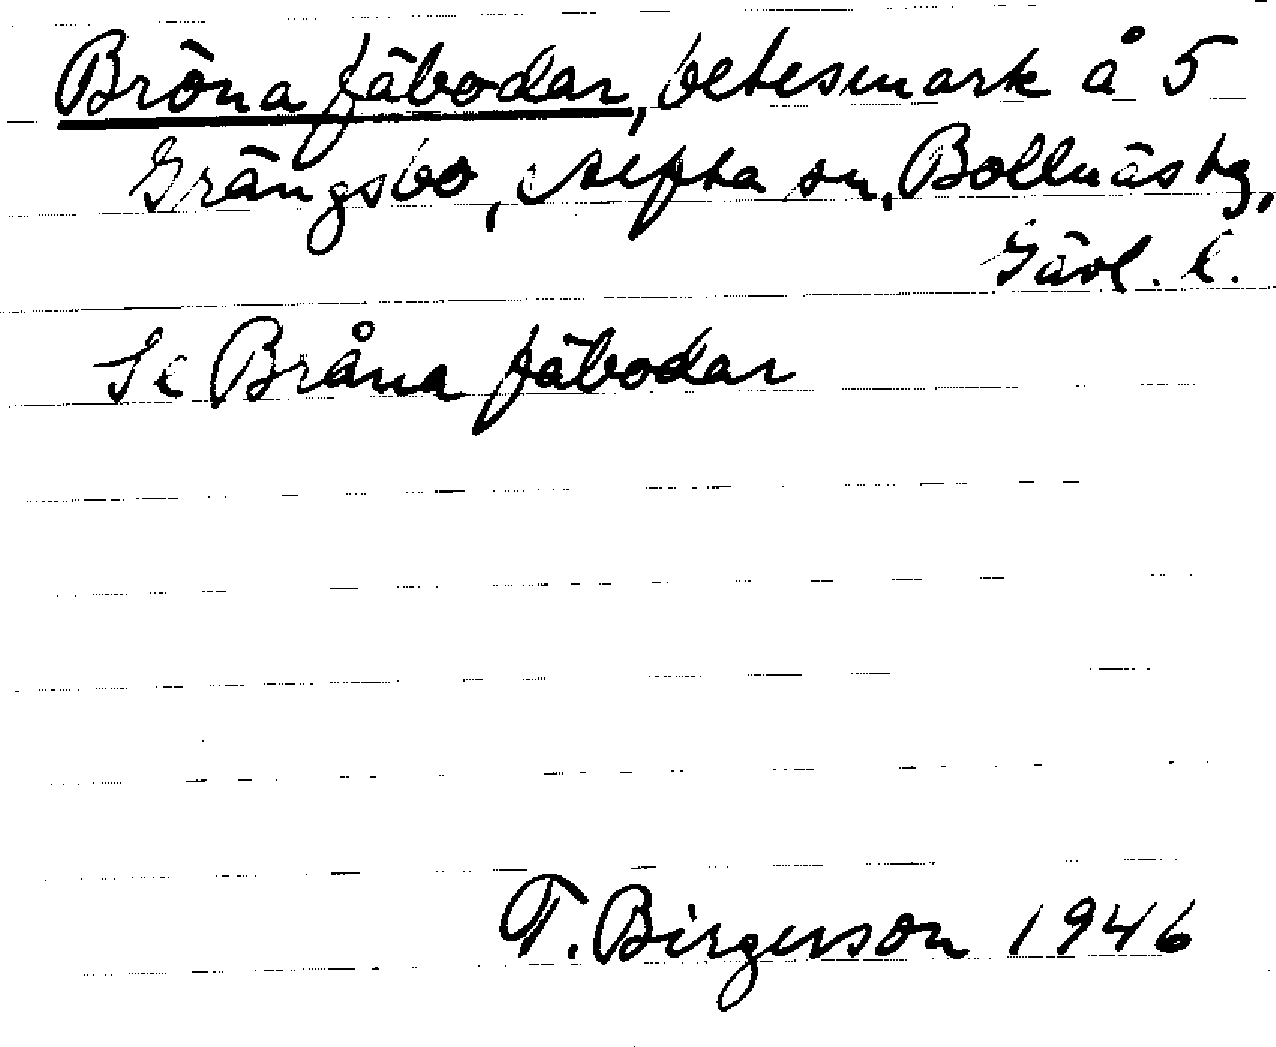 Bröna fäbodar, betesmark å 5
Grängsbo, Alfta sn, Bollnäs tg,
Gävl. l.
Se Bråna fäbodar
T. Birgerson 1946